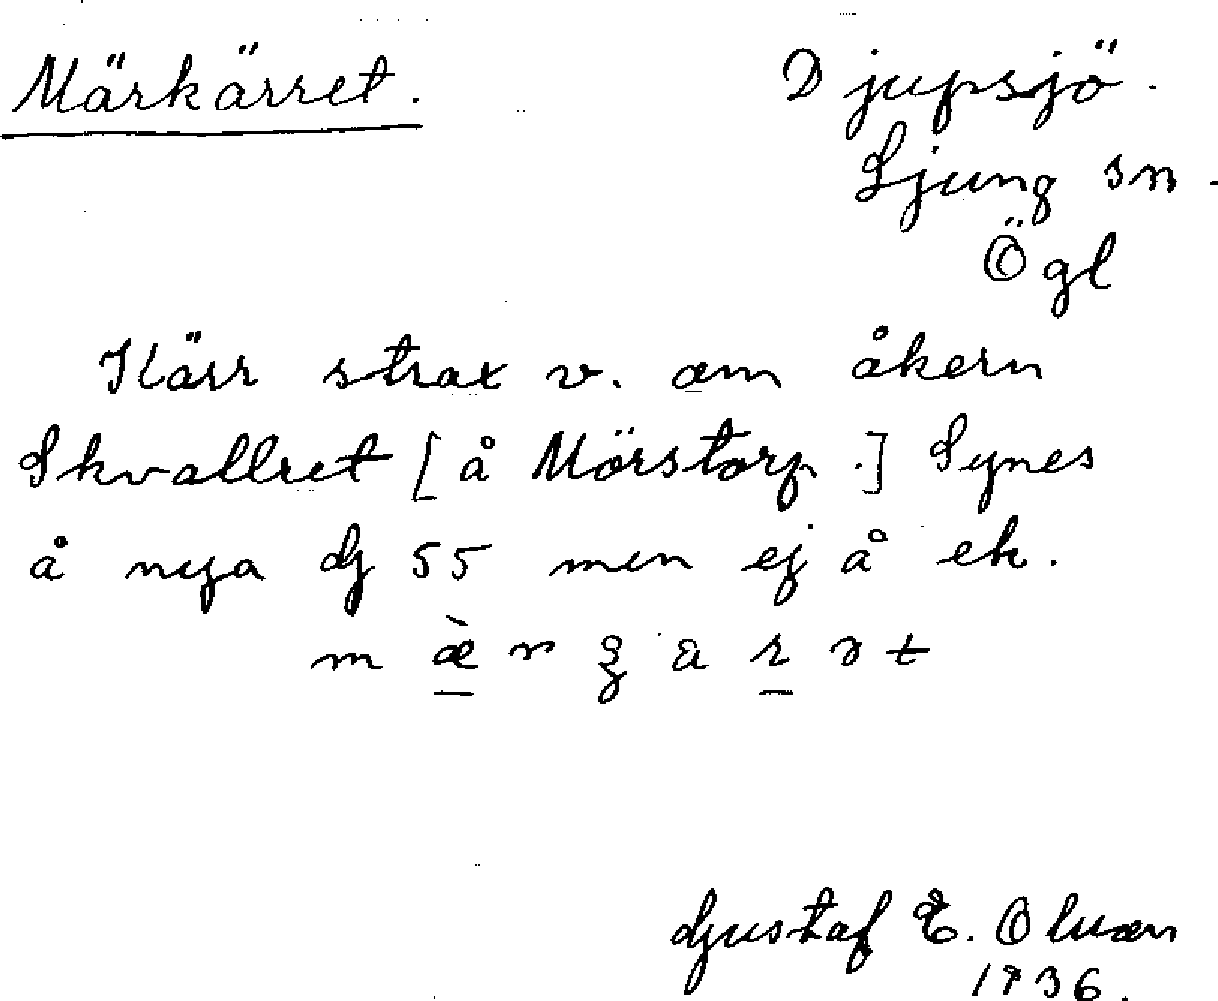 Märkärret. Djupsjö.
Ljung sn.
Ögl
Kärr strax v. om åkern
Skvallret [å Mörstorp.] Synes
å nya dj 55 men ej å ek.
Gustaf E.
1936.